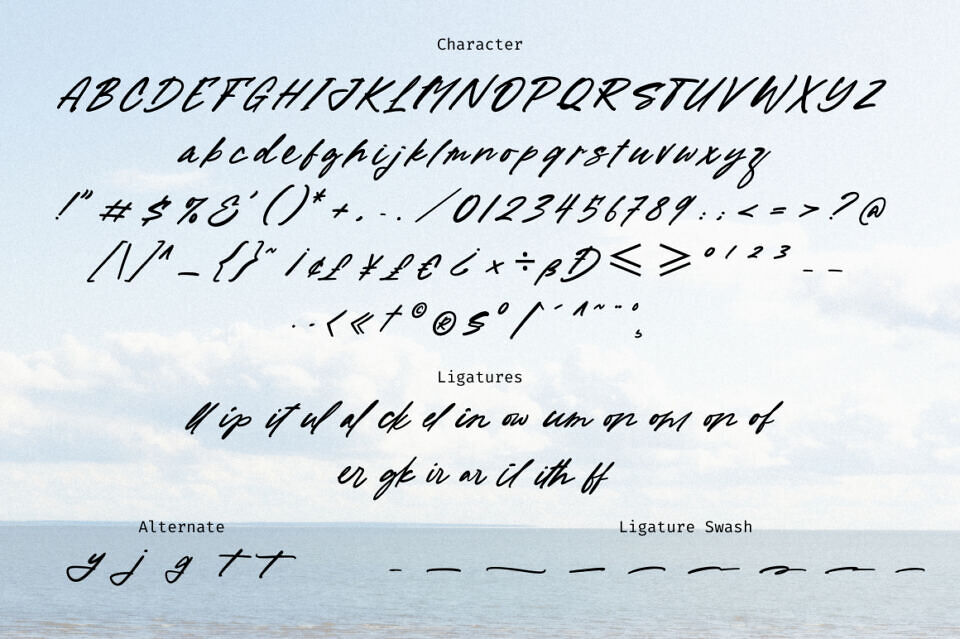 Character
ABCDEFGHIJKLMNOPQRSTUVWXYZ
abcdefghijklmnopqrstuvwxyz
!" # $ % & ' ( ) * + , - . / 0123456789 : ; < = > ? @
[ \ ] ^ _ { } ~ ¡ ¢ £ ¥ £ € ¿ × ÷ β Đ ≤ ≥ ⁰ ¹ ² ³ _ _
. . < « † © ® § º / ´ ^ ~ ¨ ° ¸
Ligatures
ll ip it ul al ck el in ow um on om on of
er gk ir ar il ith ff
Alternate
Ligature Swash
y j g t t